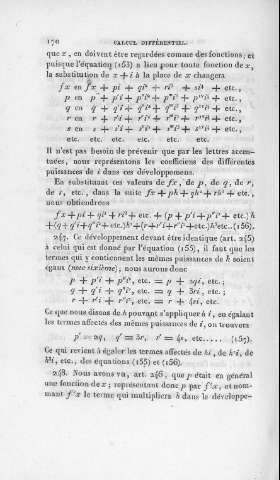 170 CALCUL DIFFÉRENTIEL.
que x, en doivent être regardées comme des fonctions; et
puisque l'équation (153) a lieu pour toute fonction de x,
la substitution de x + i à la place de x changera
fx en fx + pi + qi² + ri³ + si⁴ + etc.,
p en p + p'i + p''i² + p'''i³ + etc.,
q en q + q'i + q''i² + q'''i³ + etc.,
r en r + r'i + r''i² + r'''i³ + etc.,
s en s + s'i + s''i² + s'''i³ + etc.,
etc. etc. etc. etc. etc.
Il n'est pas besoin de prévenir que par les lettres accen-
tuées, nous représentons les coefficiens des différentes
puissances de i dans ces développemens.
En substituant ces valeurs de fx, de p, de q, de r,
de s, etc., dans la suite fx + ph + qh² + rh³ + etc.,
nous obtiendrons
fx + pi + qi² + ri³ + etc. + (p + p'i + p''i² + etc.) h
+(q+q'i+q''i²+etc.)h²+(r+r'i+r''i²+etc.)h³etc..(156).
247. Ce développement devant être identique (art. 245)
à celui qui est donné par l'équation (155), il faut que les
termes qui y contiennent les mêmes puissances de h soient
égaux (note sixième); nous aurons donc
p + p'i + p''i², etc. = p + 2qi, etc.,
q + q'i + q''i², etc. = q + 3ri, etc.;
r + r'i + r''i², etc. = r + 4si, etc.
Ce que nous disons de h pouvant s'appliquer à i, en égalant
les termes affectés des mêmes puissances de i, on trouvera
p' = 2q, q' = 3r, r' = 4s, etc..... (157).
Ce qui revient à égaler les termes affectés de hi, de h²i, de
h³i, etc., des équations (155) et (156).
248. Nous avons vu, art. 246, que p était en général
une fonction de x; représentons donc p par f'x, et nom-
mant f''x le terme qui multipliera h dans le développe-